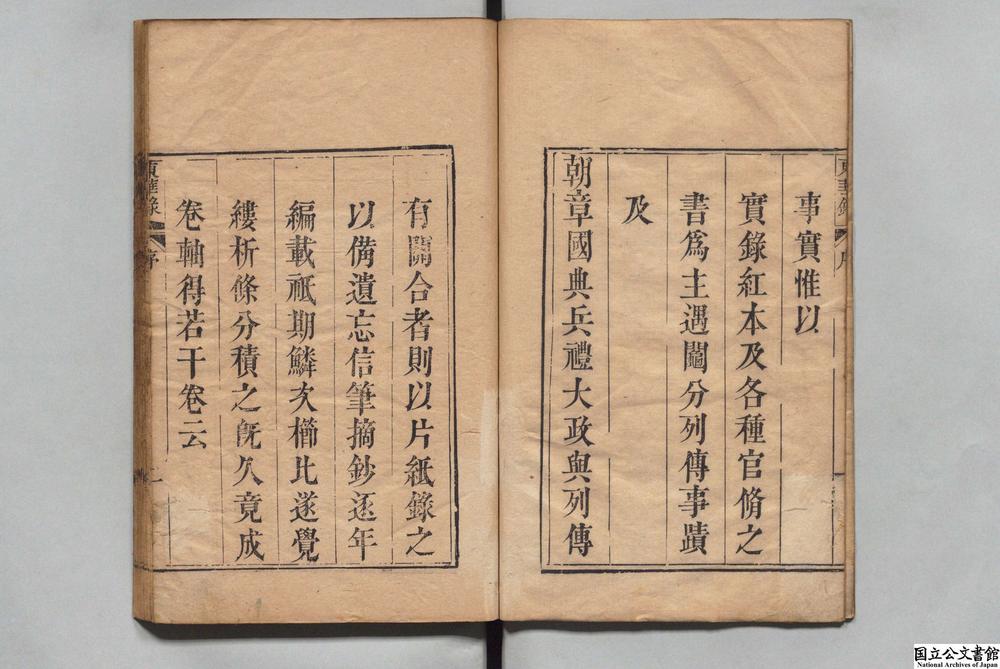 事實惟以
實錄紅本及各種官脩之
書爲主遇鬮分列傳事蹟
及
朝章國典兵禮大政與列傳
有關合者則以片紙錄之
以備遺忘信筆摘鈔逐年
編載祗期鱗次櫛比遂覺
縷析條分積之旣久竟成
卷軸得若干卷云
東華錄
序
国立公文書館
National Archives of Japan